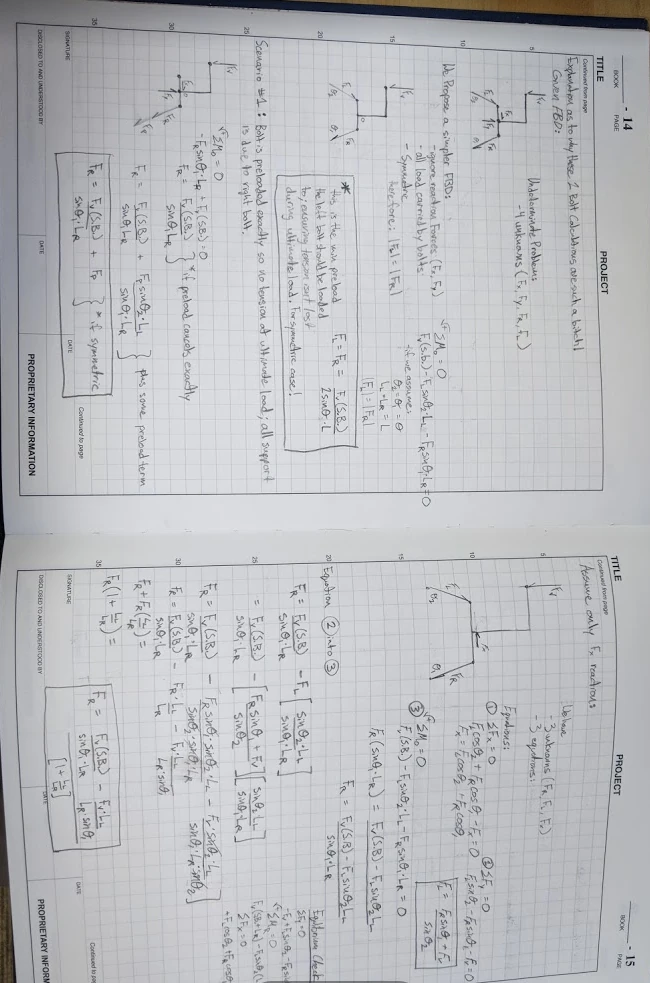 BOOK
- 14
PAGE
TITLE
PROJECT
Continued from page
Explanation as to why these 2 Bolt Calculations are such a bitch!
Given FBD:
Undeterminate Problems
- 4 unknowns (Fx, Fy, FR, FL)
We Propose a simpler FBD:
- ignore reaction Forces (Fx, Fy)
- all load carried by bolts
- Symmetric
therefore: |FL| = |FR|
ΣMo = 0
Fv(S.B.) - FL sinθ2·LL - FR sinθ1·LR = 0
if we assume:
θ2 = θ1 = θ
LL = LR = L
|FL| = |FR|
* this is the min preload
the left bolt should be loaded
to, assuming tension isn't lost
during ultimate load. For symmetric case!
FL = FR = Fv(S.B.) / 2sinθ·L
Scenario #1: Bolt is preloaded exactly so no tension at ultimate load; all support
is due to right bolt.
ΣMo = 0
- FR sinθ1·LR + Fv(S.B.) = 0
FR = Fv(S.B.) / sinθ1·LR } * if preload cancels exactly
FR = Fv(S.B.) / sinθ1·LR + FP sinθ2·LL / sinθ1·LR } plus some preload term
FR = Fv(S.B.) / sinθ1·LR + FP } * if symmetric
SIGNATURE
DATE
Continued to page
DISCLOSED TO AND UNDERSTOOD BY
DATE
PROPRIETARY INFORMATION
TITLE
PROJECT
BOOK
- 15
PAGE
Continued from page
Assume only Fx reactions
We have
- 3 unknowns (FR, FL, Fx)
- 3 equations:
Equations:
① ΣFx = 0
FL cosθ2 + FR cosθ1 - Fx = 0
Fx = FL cosθ2 + FR cosθ1
② ΣFy = 0
FL sinθ2 - FR sinθ1 - Fv = 0
FL = FR sinθ1 + Fv / sinθ2
③ ΣMo = 0
Fv(S.B.) - FL sinθ2·LL - FR sinθ1·LR = 0
FR (sinθ1·LR) = Fv(S.B) - FL sinθ2 LL
FR = Fv(S.B) - FL sinθ2 LL / sinθ1·LR
Equation ② into ③
FR = Fv(S.B) / sinθ1·LR - FL [sinθ2·LL / sinθ1·LR]
= Fv(S.B.) / sinθ1·LR - [FR sinθ1 + Fv / sinθ2] [sinθ2 LL / sinθ1 LR]
FR = Fv(S.B.) / sinθ1·LR - [FR sinθ1 sinθ2·LL / sinθ2·sinθ1·LR - Fv·sinθ2·LL / sinθ1·LR·sinθ2]
FR = Fv(S.B.) / sinθ1·LR - FR·LL / LR - Fv·LL / LR·sinθ1
FR + FR(LL / LR) =
FR(1 + LL / LR) =
FR = Fv(S.B.) / sinθ1·LR - Fv·LL / LR·sinθ1 / [1 + LL / LR]
Equilibrium Check
ΣFy = 0
ΣMo = 0
ΣFx = 0
SIGNATURE
DATE
DISCLOSED TO AND UNDERSTOOD BY
DATE
PROPRIETARY INFORM